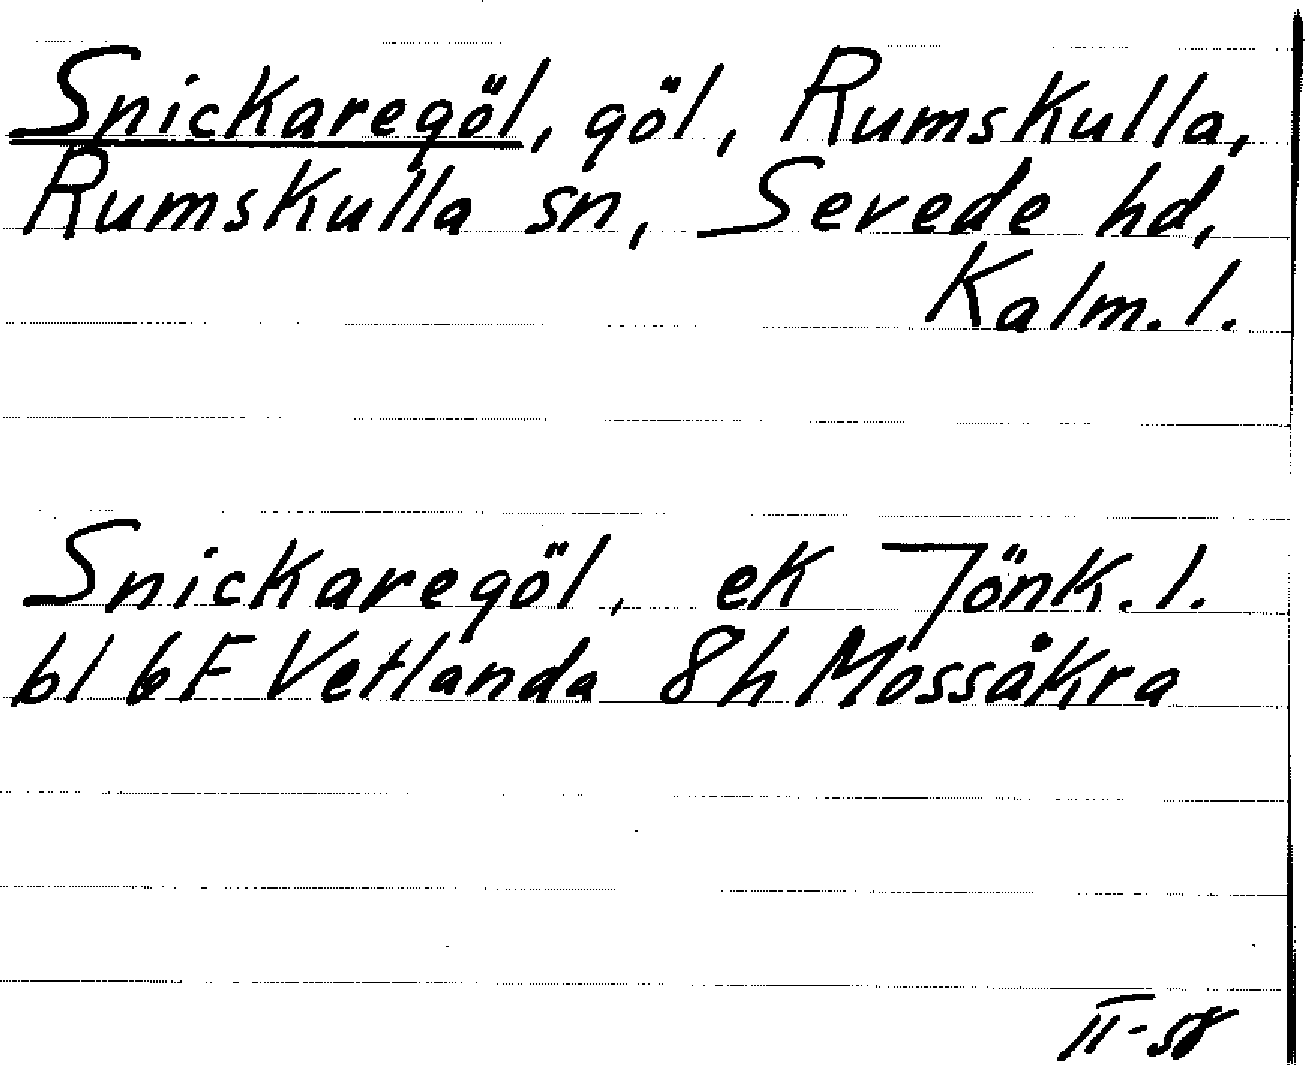 Snickaregöl, göl, Rumskulla,
Rumskulla sn, Sevede hd,
Kalm. l.
Snickaregöl, ek Jönk. l.
bl 6F Vetlanda 8h Mossåkra
II-58